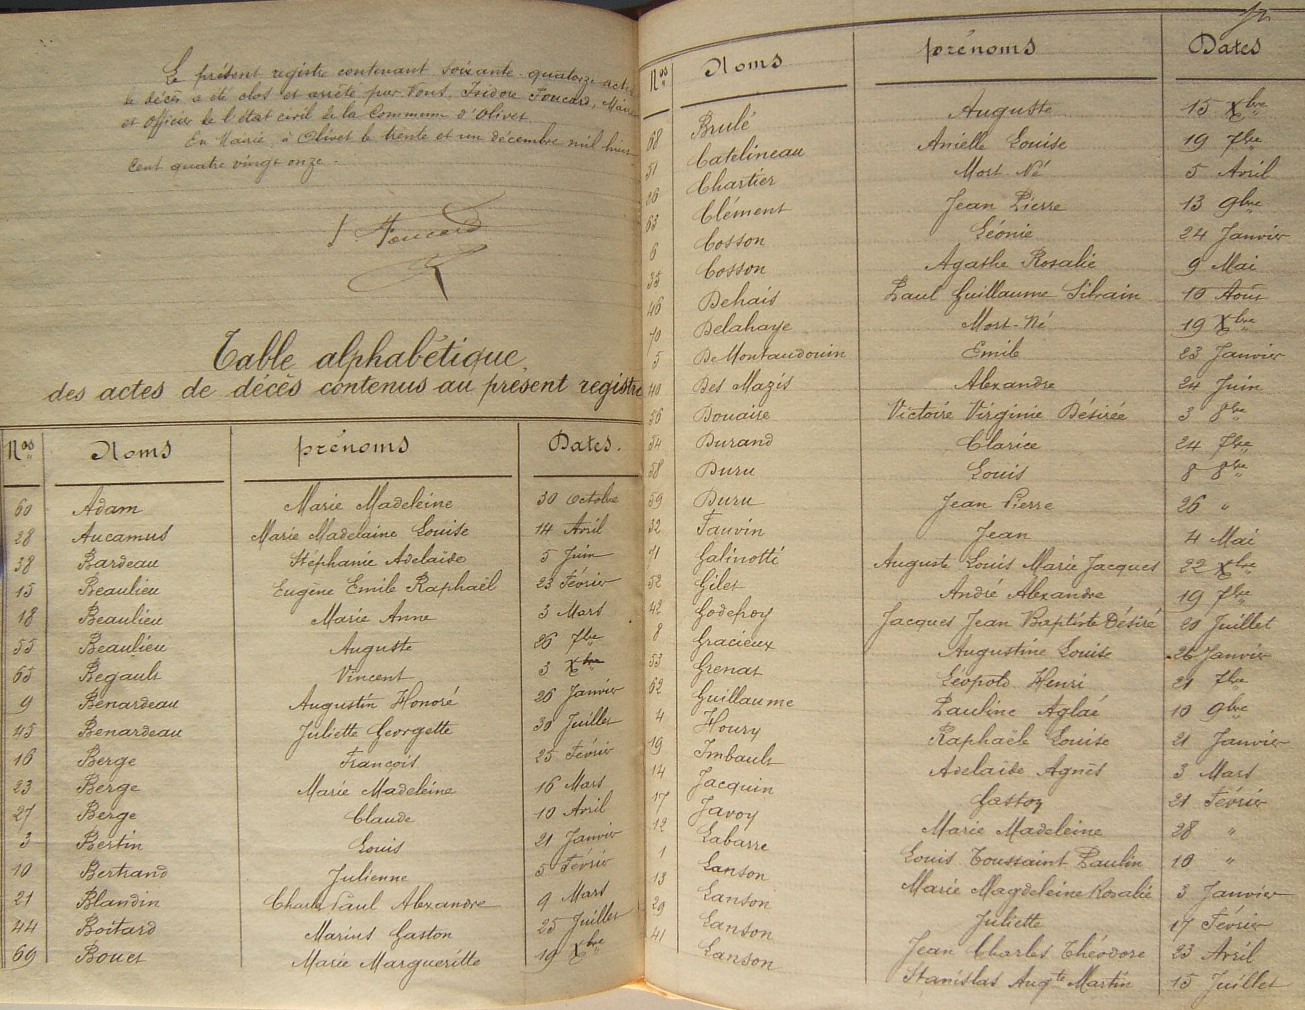 Le présent registre contenant soixante-quatorze actes
de décès a été clos et arrêté par Nous, Isidore Foucard, Maire
et Officier de l'état civil de la Commune d'Olivet
En Mairie, à Olivet le trente et un décembre mil huit
cent quatre vingt onze.
I. Foucard
Table alphabétique
des actes de décès contenus au présent registre
Nos Noms prénoms Dates.
60 Adam Marie Madeleine 30 Octobre
28 Aucamus Marie Madelaine Louise 14 Avril
38 Bardeau Stéphanie Adelaïde 5 Juin
15 Beaulieu Eugène Emile Raphaël 23 Février
18 Beaulieu Marie Anne 3 Mars
55 Beaulieu Auguste 26 7bre
65 Begault Vincent 3 Xbre
9 Benardeau Augustin Honoré 26 Janvier
45 Benardeau Juliette Georgette 30 Juillet
16 Berge François 25 Février
23 Berge Marie Madeleine 16 Mars
27 Berge Claude 10 Avril
3 Bertin Louis 21 Janvier
10 Bertrand Julienne 5 Février
21 Blandin Charles Paul Alexandre 9 Mars
44 Boitard Marius Gaston 25 Juillet
69 Bouet Marie Margueritte 19 Xbre
Nos Noms prénoms Dates
68 Brulé Auguste 15 Xbre
51 Catelineau Anielle Louise 19 7bre
26 Chartier Mort Né 5 Avril
63 Clément Jean Pierre 13 9bre
6 Cosson Léonie 24 Janvier
35 Cosson Agathe Rosalie 9 Mai
46 Dehais Paul Guillaume Silvain 10 Août
70 Delahaye Mort-Né 19 Xbre
5 DeMontaudouin Emile 23 Janvier
40 Des Mazis Alexandre 24 Juin
56 Douaire Victoire Virginie Désirée 3 8bre
54 Durand Clarice 24 7bre
58 Duru Louis 8 8bre
59 Duru Jean Pierre 26 "
32 Fauvin Jean 4 Mai
71 Galinotti Auguste Louis Marie Jacques 22 Xbre
52 Gilet André Alexandre 19 7bre
42 Godefroy Jacques Jean Baptiste Désiré 20 Juillet
8 Gracieux Augustine Louise 26 Janvier
53 Grenat Léopold Henri 21 7bre
62 Guillaume Pauline Aglaé 10 9bre
4 Houry Raphaële Louise 21 Janvier
19 Imbault Adelaïde Agnès 3 Mars
14 Jacquin Gaston 21 Février
17 Javoy Marie Madeleine 28 "
12 Labarre Louis Toussaint Paulin 10 "
1 Lanson Marie Magdeleine Rosalie 3 Janvier
13 Lanson Juliette 17 Février
29 Lanson Jean Charles Théodore 23 Avril
41 Lanson Stanislas Augte Martin 15 Juillet